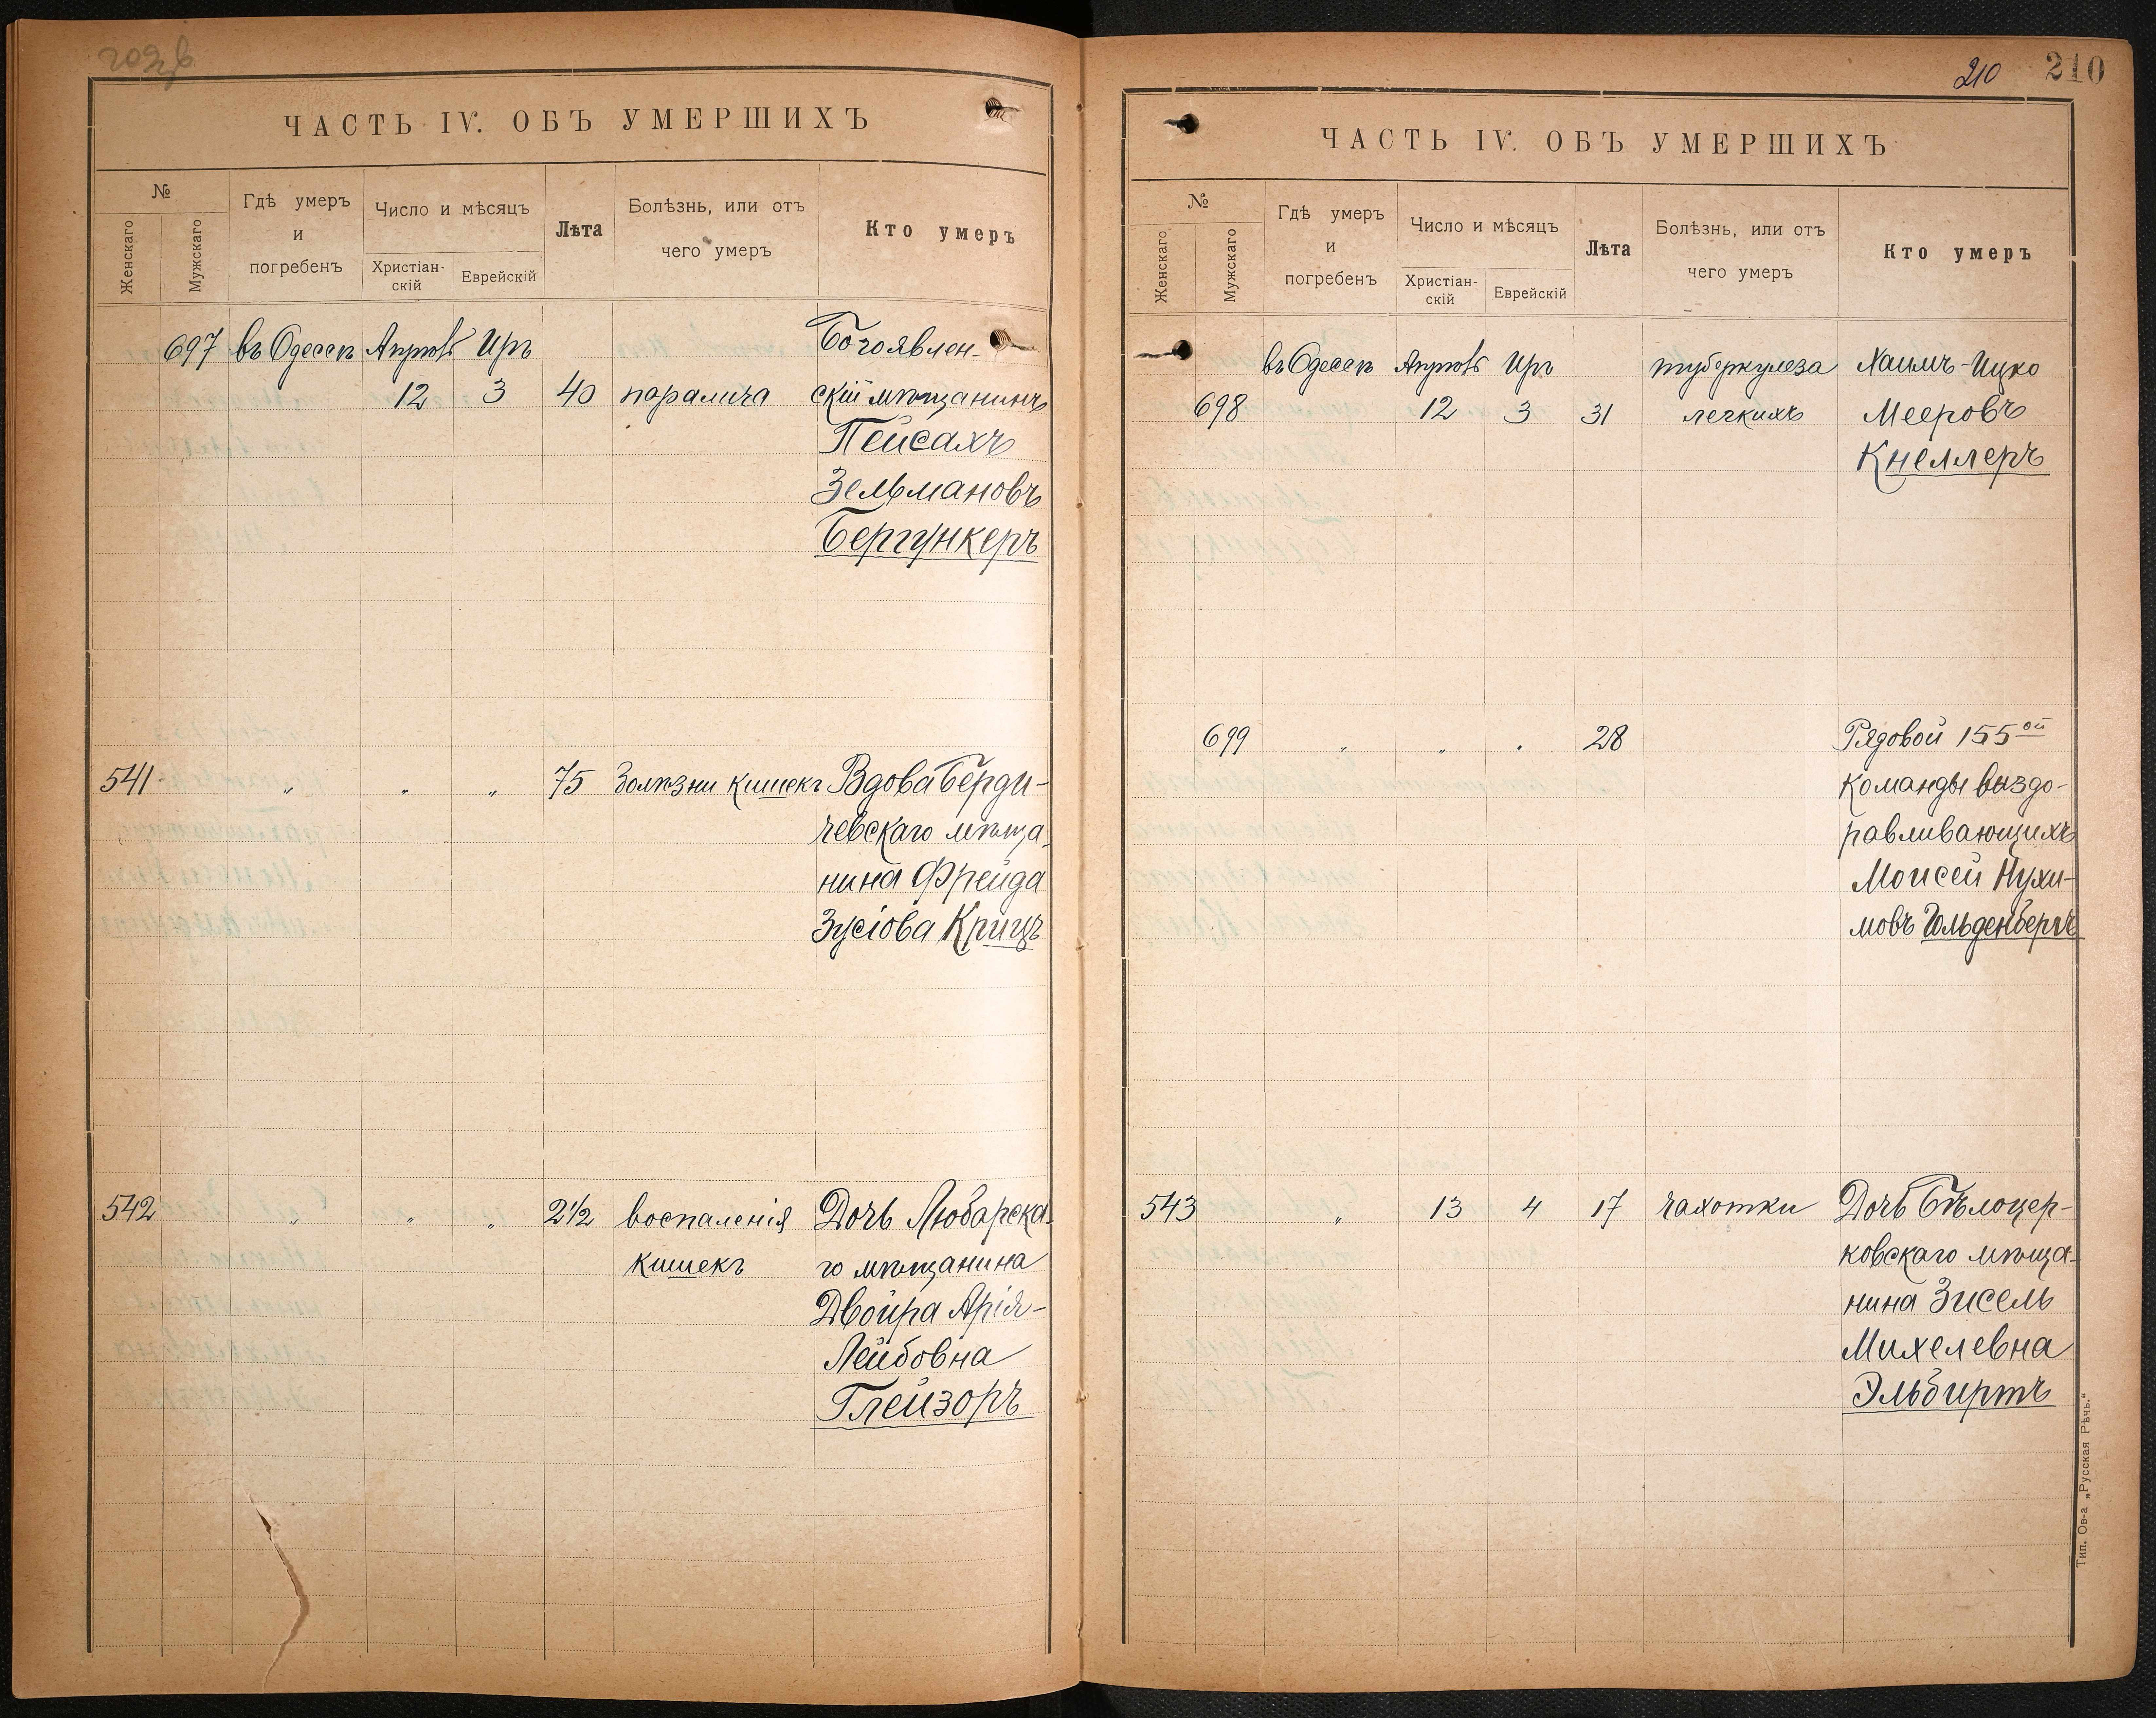 ЧАСТЬ IV. ОБЪ УМЕРШИХЪ
№
Женскаго
Мужскаго
Гдѣ умеръ
и
погребенъ
Число и мѣсяцъ
Христіан-
скій
Еврейскій
Лѣта
Болѣзнь, или отъ
чего умеръ
Кто умеръ
697 въ Одессѣ Апрѣль Иръ Богоявлен-
12 3 40 паралича скій мѣщанинъ
Пейсахъ
Зельмановъ
Бергункеръ
541 „ „ „ 75 болѣзни кишекъ Вдова Берди-
чевскаго мѣща
нина Фрейда
Зусіова Крицъ
542 „ „ „ 2½ воспаленія Дочь Любарска-
кишекъ го мѣщанина
Двойра Арія-
Лейбовна
Глейзоръ
210 210
ЧАСТЬ IV. ОБЪ УМЕРШИХЪ
№
Женскаго
Мужскаго
Гдѣ умеръ
и
погребенъ
Число и мѣсяцъ
Христіан-
скій
Еврейскій
Лѣта
Болѣзнь, или отъ
чего умеръ
Кто умеръ
въ Одессѣ Апрѣль Иръ туберкулеза Хаимъ-Ицко
698 12 3 31 легкихъ Мееровъ
Кнеллеръ
699 „ „ „ 28 Рядовой 155ой
команды выздо-
равливающихъ
Моисей Нухи-
мовъ Гольденбергъ
543 „ 13 4 17 чахотки Дочь Бѣлоцер-
ковскаго мѣща-
нина Зисель
Михелевна
Эльбиртъ
Тип. Ов-а „Русская Рѣчь."